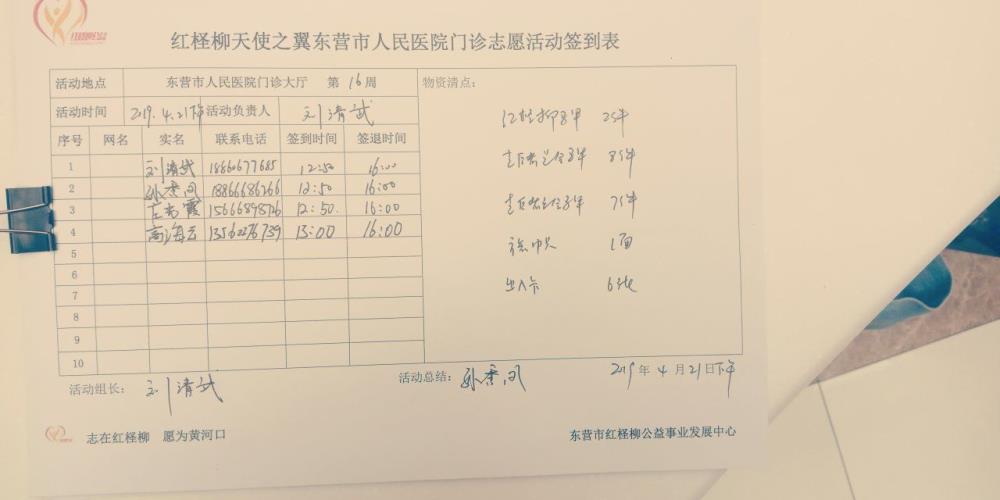 红柽柳天使之翼东营市人民医院门诊志愿活动签到表
活动地点 东营市人民医院门诊大厅 第16周 物资清点：
活动时间 2019.4.21下午 活动负责人 刘清武
序号 网名 实名 联系电话 签到时间 签退时间
1 刘清武 18860677685 12:50 16:00
2 孙秀凤 18866686266 12:50 16:00
3 霞 12:50. 16:00
4 高海云 13562276739 13:00 16:00
5
6
7
8
9
10
红柽柳 25件
8件
7件
1面
出入卡 6张
活动组长：刘清武 活动总结： 2019年4月21日下午
志在红柽柳 愿为黄河口 东营市红柽柳公益事业发展中心